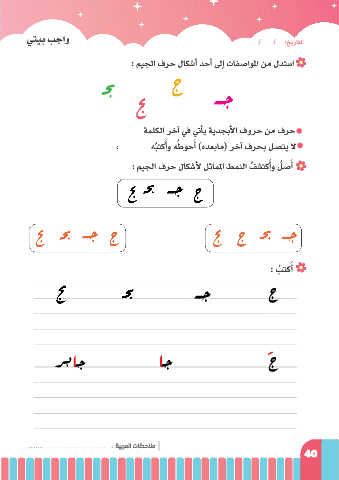 واجب بيتي
التاريخ: / /
استدل من المواصفات إلى أحد أشكال حرف الجيم :
بجـ ج ـج جـ
حرف من حروف الأبجدية يأتي في آخر الكلمة
لا يتصل بحرف آخر (مابعده) أحوطُه وأكتبُه :
أَصلُ وأكتشفُ النمط المماثل لأشكال حرف الجيم :
ج جـ ـجـ ـج
جـ ـجـ ج ـج
ج جـ ـجـ ـج
أكتبُ :
ج جـ ـجـ ـج
جَ جا جابر
ملاحظات العربية :
40